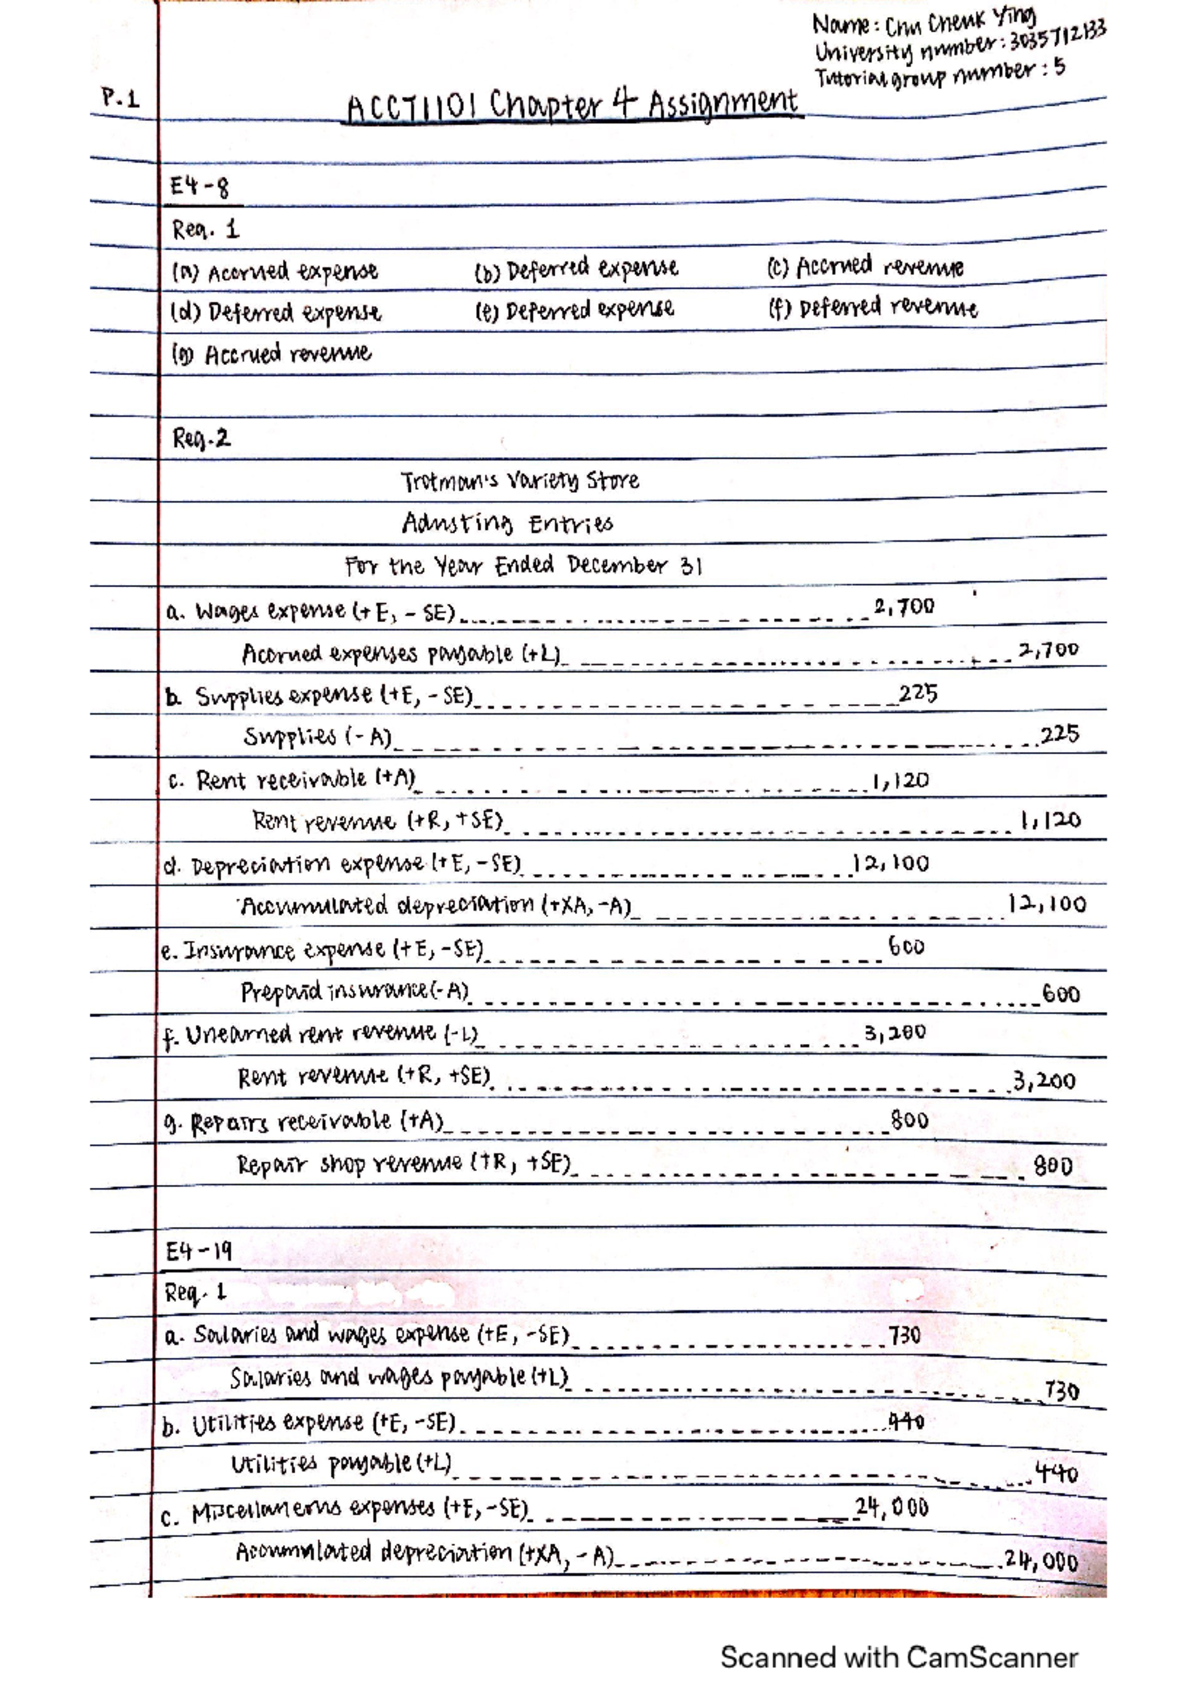 Name: Chu Cheuk Ying
University number: 3035712133
Tutorial group number: 5
P.1
ACCT1101 Chapter 4 Assignment
E4-8
Req. 1
(a) Accrued expense (b) Deferred expense (c) Accrued revenue
(d) Deferred expense (e) Deferred expense (f) Deferred revenue
(g) Accrued revenue
Req.2
Trotman's Variety Store
Adusting Entries
For the Year Ended December 31
a. Wages expense (+E, -SE) 2,700
Accrued expenses payable (+L) 2,700
b. Supplies expense (+E, -SE) 225
Supplies (-A) 225
c. Rent receivable (+A) 1,120
Rent revenue (+R, +SE) 1,120
d. Depreciation expense (+E, -SE) 12,100
Accumulated depreciation (+XA, -A) 12,100
e. Insurance expense (+E, -SE) 600
Prepaid insurance (-A) 600
f. Unearned rent revenue (-L) 3,200
Rent revenue (+R, +SE) 3,200
g. Repairs receivable (+A) 800
Repair shop revenue (+R, +SE) 800
E4-19
Req. 1
a. Salaries and wages expense (+E, -SE) 730
Salaries and wages payable (+L) 730
b. Utilities expense (+E, -SE) 440
Utilities payable (+L) 440
c. Miscellaneous expenses (+E, -SE) 24,000
Accumulated depreciation (+XA, -A) 24,000
Scanned with CamScanner